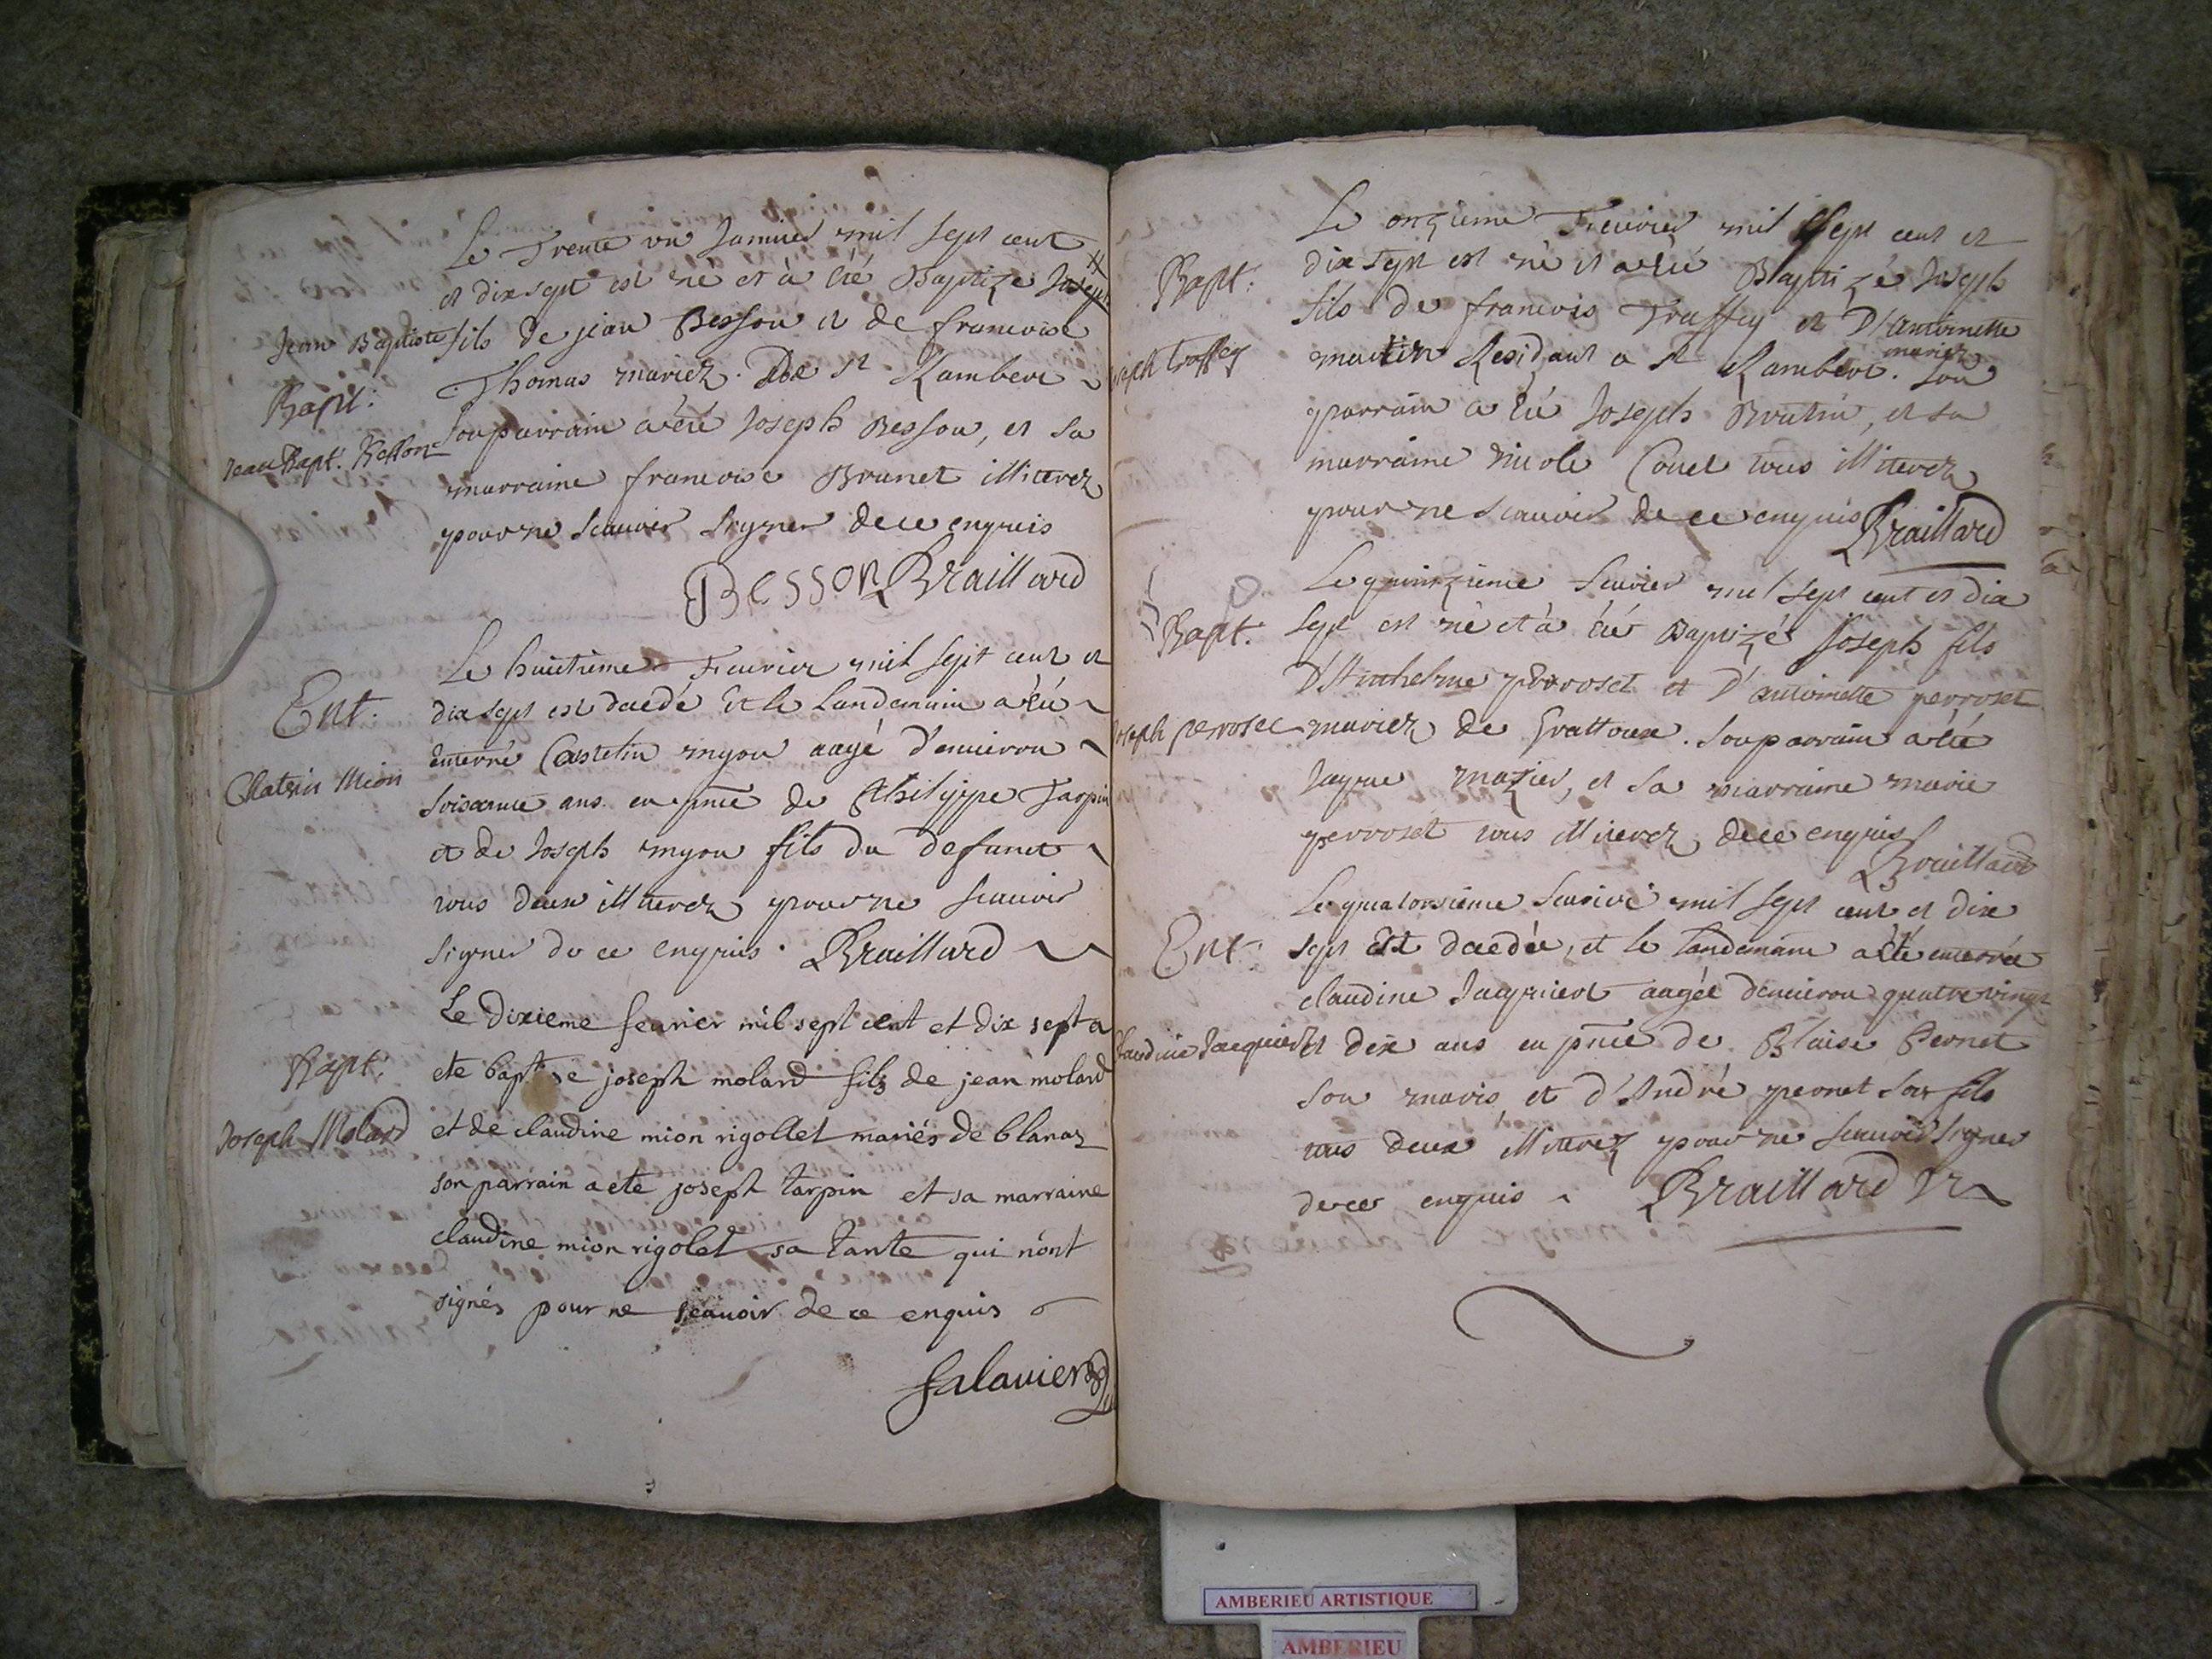 Le Trente un Januier mil sept cent
et dix sept est né et à été Baptize Joseph
Jean Baptiste
fils de jean Besson et de francoise
Thomas mariez. De St Rambert
Bapt:
son parrain a été Joseph Besson, et sa
Jean Bapt. Besson
marraine francoise Brunet illiterez
pour ne scauoir signer de ce enquis
BESSON Braillard
Le huitième Feurier mil sept cent et
Ent:
dix sept est decedé et le Landemain a été
enterré myon aagé d'enuiron
Mion
soisante ans en pnce de Philippe Tarpin
et de Joseph myon fils du defunct
tous deux illiterez pour ne scauoir
signer de ce enquis. Braillard
Le dixieme feurier mil sept cent et dix sept a
Bapt:
ete joseph molard fils de jean molard
Joseph Molard
et de claudine mion rigollet mariés de blanaz
son parrain a ete joseph tarpin et sa marraine
claudine mion rigolet sa tante qui n'ont
signés pour ne scauoir de ce enquis
Salauier
Le onzieme Feurier mil sept cent et
Bapt:
dix sept est né et a été Baptizé Joseph
fils de francois Truffey et D'antoinette
mariez
martin Residant a St Rambert. son
parrain a été Joseph Boutin, et sa
marraine nicole Couet tous illiterez
pour ne scauoir de ce enquis Braillard
Le quinzieme feurier mil sept cent et dix
Bapt.
sept est né et à été Baptizé Joseph fils
D'Anthelme perroset et D'antoinette perroset
mariez de Grattoux. son parrain a été
mazier, et sa marraine marie
perroset tous illiterez de ce enquis
Braillard
Le quatorsieme feurier mil sept cent et dix
Ent:
sept est decedée, et le landemain a été enterrée
claudine Jacquiert aagée denuiron quatre vingt
et dix ans en pnce de Blaise Pernet
son maris et d'André pernet son fils
tous deux illiterez pour ne scauoir signer
de ce enquis Braillard
AMBERIEU ARTISTIQUE
AMBERIEU